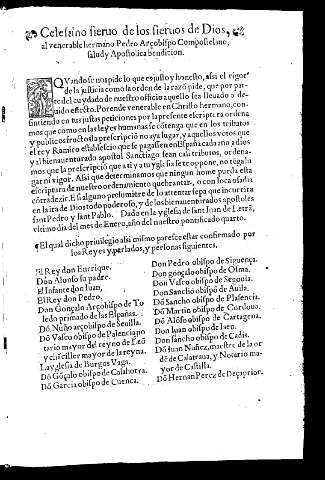 Celestino sieruo de los sieruos de Dios,
al venerable hermano Pedro Arçobispo Compostelano,
salud y Apostolica bendicion.
QVando se nos pide lo que es justo y honesto, assi el rigor
de la justicia como la orden de la razõ pide, que por par-
te del cuydado de nuestro officio aquello sea lleuado a de-
uido efecto. Por ende venerable en Christo hermano, con-
sintiendo en tus justas peticiones por la presente escriptura ordena
mos que como en las leyes humanas se cõtenga que en los tributos
y publicas fructos la prescripcion no aya lugar, y aquellos votos que
el rey Ramiro establescio que se pagassen en España cada año a dios
y al bienauenturado apostol Sanctiago sean casi tributos, ordena-
mos que la prescripcion que a ti y a tu yglesia se te oppone, no tẽga lu
gar ni vigor. Assi que determinamos que ningun home pueda esta
escriptura de nuestro ordenamiento quebrantar, o con loca osadia
cõtradezir. E si alguno presumiere de lo atentar sepa que incurrira
en la ira de Dios todo poderoso, y de los bienauenturados apostoles
sant Pedro y sant Pablo. Dado en la yglesia de sant Iuan de Letrã,
vltimo dia del mes de Enero, año del nuestro pontificado quarto.
¶ El qual dicho priuilegio assi mismo paresce estar confirmado por
los Reyes y perlados, y personas siguientes.
El Rey don Enrrique.
Dõn Alonso su padre.
El Infante don Iuan,
El Rey don Pedro,
Don Gonçalo Arçobispo de To
ledo primado de las Españas.
Dõ Nuño arçobispo de Seuilla.
Dõ Vasco obispo de Palencia no
tario mayor del reyno de Leõ
y chãciller mayor de la reyna.
La yglesia de Burgos Vaga.
Dõ Gõçalo obispo de Calahorra.
Dõ Garcia obispo de Cuenca.
Don Pedro obispo de Siguença.
Don gonçalo obispo de Osma.
Don Vasco obispo de Segouia.
Don Sancho obispo de Auila.
Dõ Sancho obispo de Plasencia.
Dõ Martin obispo de Cordoua.
Dõ Alõso obispo de Cartagena.
Don Iuan obispo de Iaen.
Don sancho obispo de Cadis.
Dõ Iuan Nuñez, maestre de la or
dẽ de Calatraua, y Notario ma-
yor de Castilla.
Dõ Hernan Perez de Deçayrior.